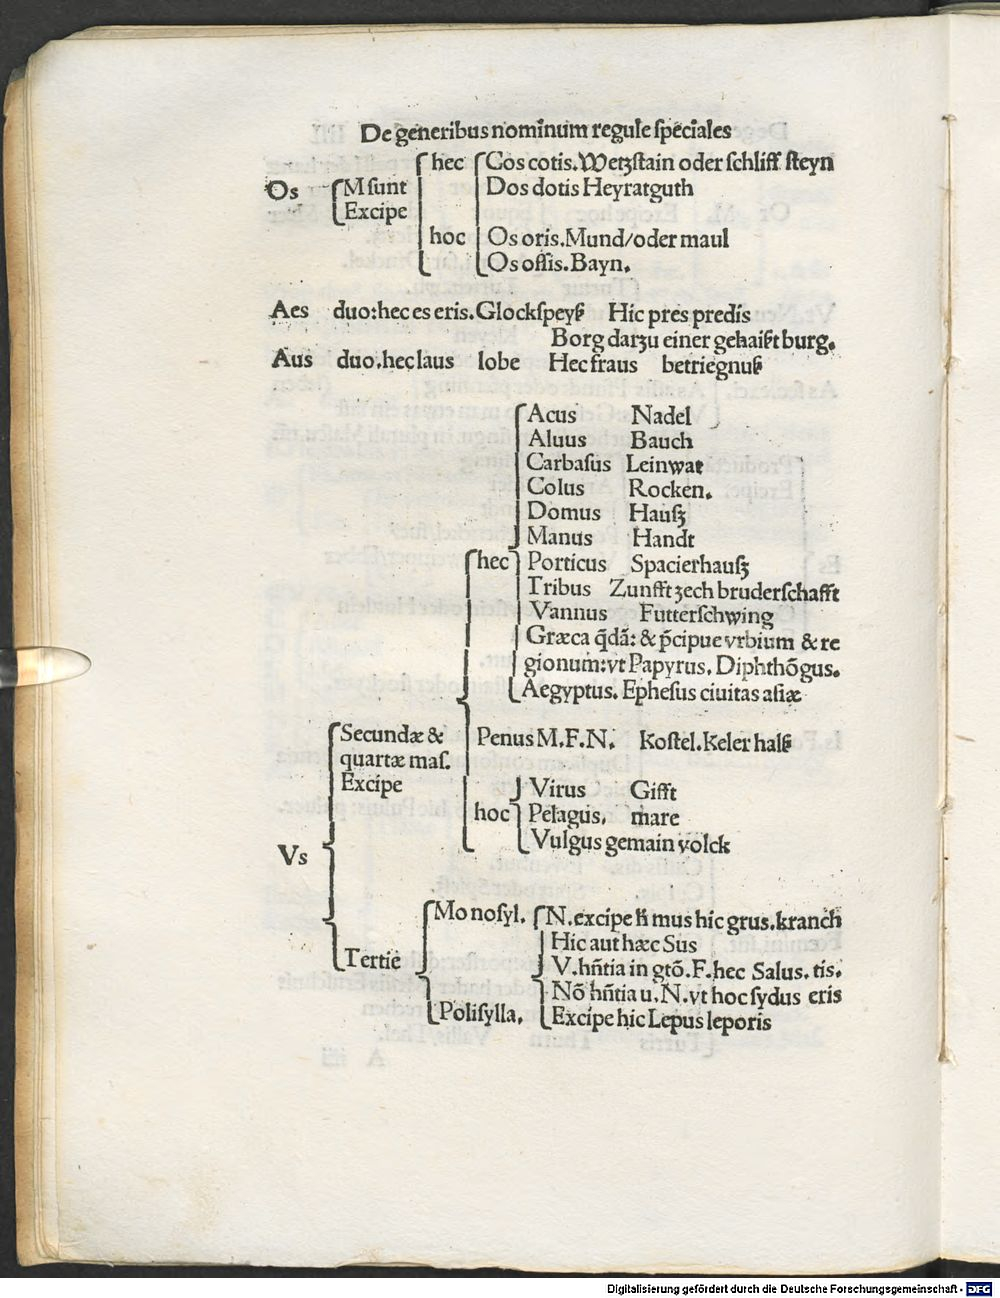 De generibus nominum regule speciales
hec Cos cotis. Wetzstain oder schliff steyn
Os M sunt Dos dotis Heyratguth
Excipe
hoc Os oris. Mund/oder maul
Os ossis. Bayn.
Aes duo: hec es eris. Glockspeyß Hic pres predis
Borg darzu einer gehaißt burg.
Aus duo. hec laus lobe Hec fraus betriegnuß
Acus Nadel
Aluus Bauch
Carbasus Leinwat
Colus Rocken.
Domus Hausz
Manus Handt
hec Porticus Spacierhausz
Tribus Zunfft zech bruderschafft
Vannus Futterschwing
Græca q̃dã: & p̃cipue vrbium & re
gionum: vt Papyrus. Diphthõgus.
Aegyptus. Ephesus ciuitas asiæ
Secundæ & Penus M. F. N. Kostel. Keler halß
quartæ mas.
Excipe Virus Gifft
hoc Pelagus. mare
Vulgus gemain volck
Vs
Monosyl. N. excipe h̃ mus hic grus. kranch
Hic aut hæc Sus
Tertie V. hñtia in gtõ. F. hec Salus. tis.
Nõ hñtia u. N. vt hoc sydus eris
Polisylla. Excipe hic Lepus leporis
Digitalisierung gefördert durch die Deutsche Forschungsgemeinschaft - DFG